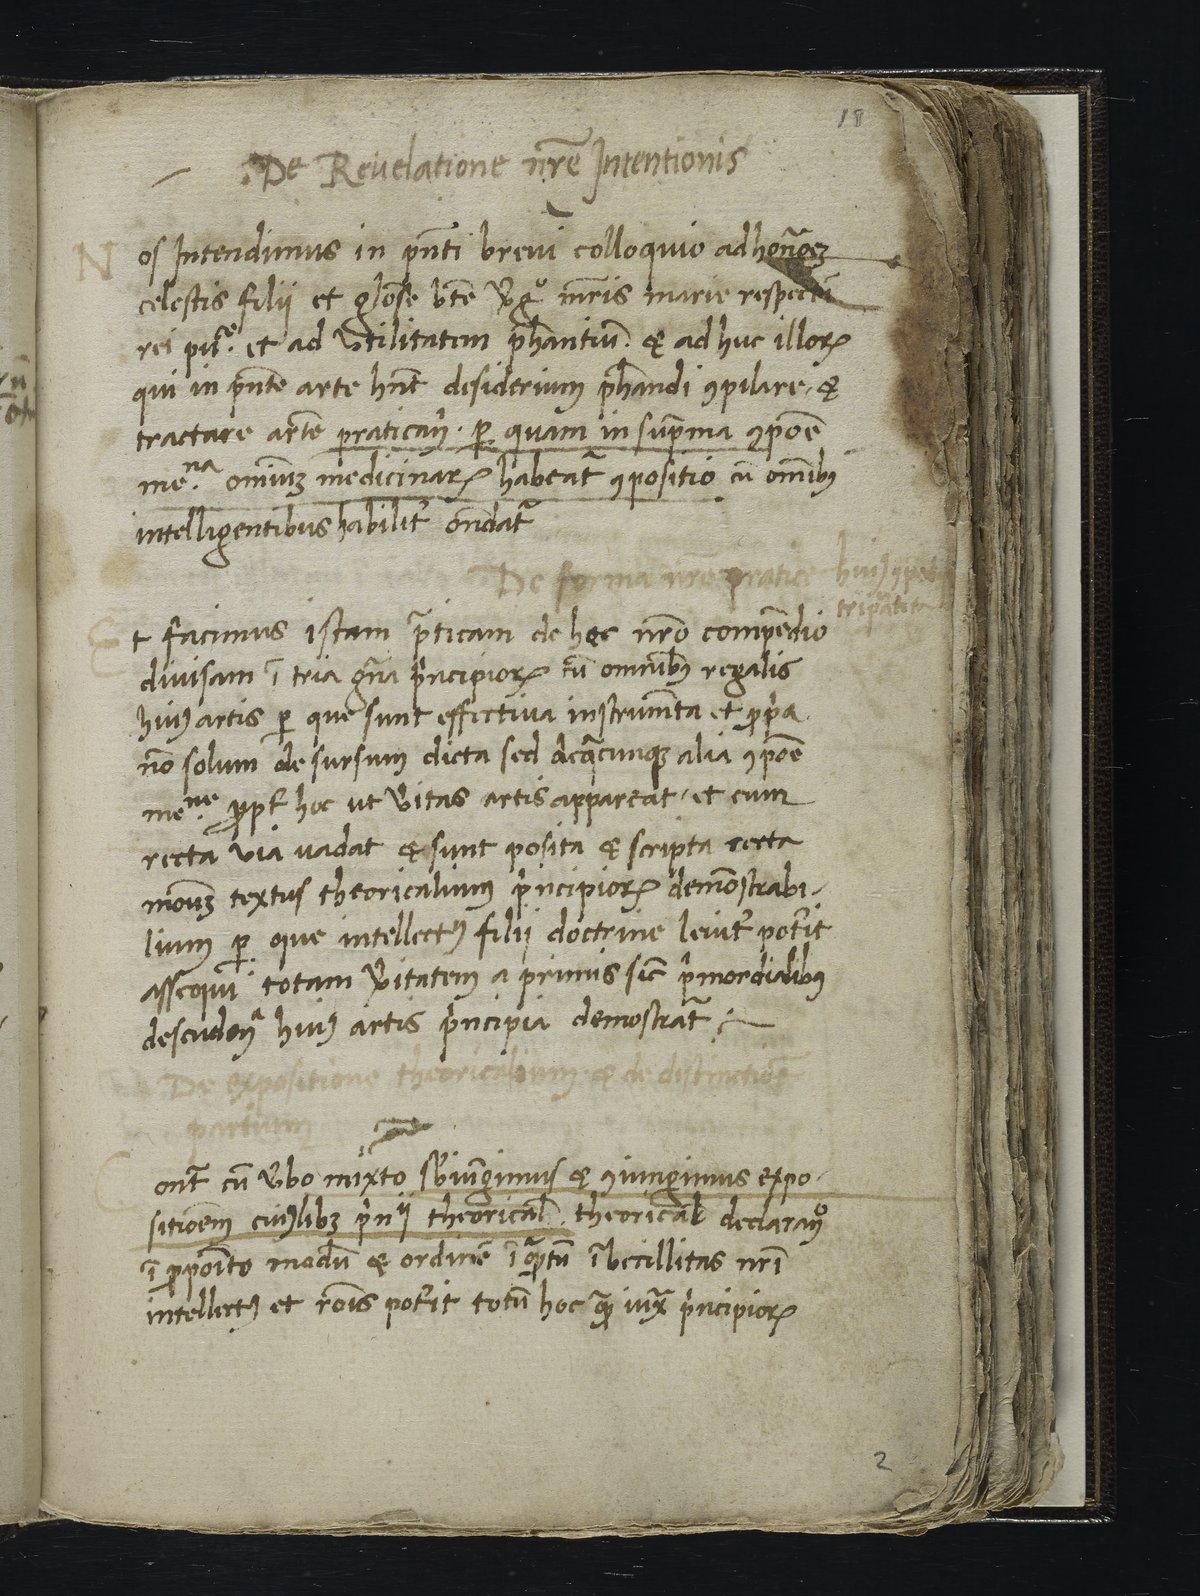 18
De Revelatione nr̄e Intentionis
Nos Intendimus in pn̄ti brevi colloquio ad honōꝫ
celestis filii et glose bt̄e v̄gͦ mr̄is marie respectu
rei et ad vtilitatem ph̄antiū & ad huc illoꝝ
qui in pn̄te arte hn̄t desiderium ph̄andi ꝯpilare &
tractare artē praticam̄ ꝑ quam in sup̄ma ꝯpōe
me.ⁿᵃ omniuꝫ medicinaꝝ habeat᷑ ꝯpositio cū omībꝰ
intelligentibus habilit᷑ on̄dat᷑
De forma nr̄e pratice huiꝰ
tripartita
Et facimus istam p̄ticam de hoc nr̄o compēdio
divisam ī tria gn̄a p̄ncipioꝝ cū omnibꝰ regalis
huiꝰ artis ꝑ que sunt effectiva instrumēta et ꝓp̄a
nō solum de sursum dicta sed alia ꝯpōe
me.ⁿᵉ ꝓpt᷑ hoc ut v̄itas artis appareat et cum
recta via vadat & sunt posita & scripta certa
textus theoricalium p̄ncipioꝝ demōstrabi-
lium ꝑ que intellectꝰ filii doctrine levit᷑ pot᷑it
assequi totam v̄itatem a primis sic p̄mordialibꝰ
huiꝰ artis p̄ncipia demostrat᷑
De expositione theoricalium & de distinctiōe
partium
Cont᷑ cū v̄bo mixto sb̄iūgimus & ꝯiungimus expo-
sitiōem cuiꝰlibꝫ p̄nⁱⁱ theorical̄ theorical̄
ī ꝓpōito modū & ordinē ī q̄ꝫtū ībecillitas nr̄i
intellectꝰ et rōis pot᷑it totū hoc iuxᵃ p̄ncipioꝝ
2